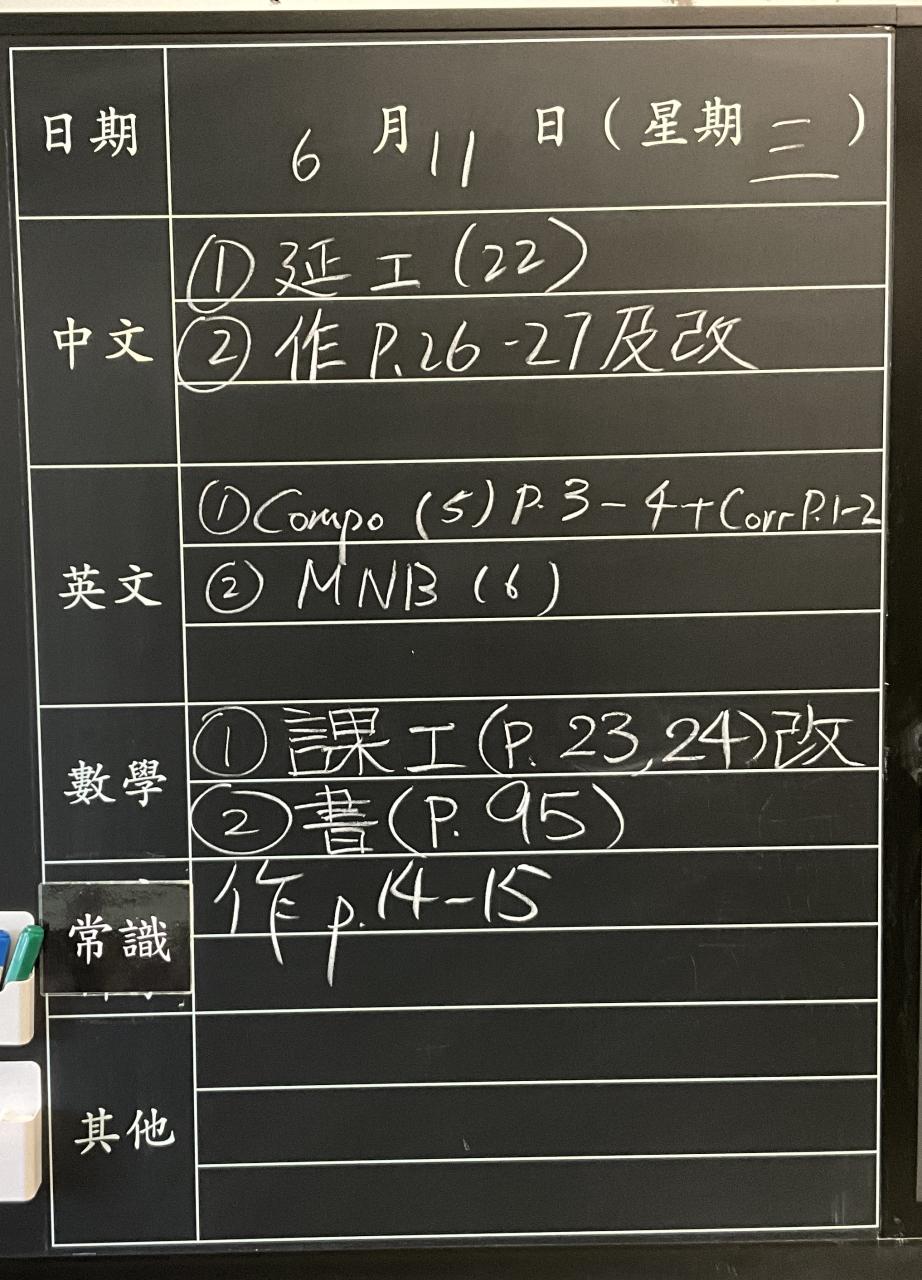 日期 6 月 11 日 ( 星期 三 )
中文
① 延工 (22)
② 作 P.26-27及改
英文
① Compo (5) P.3-4+Corr P.1-2
② MNB (6)
數學
① 課工(P.23,24)改
② 書(P.95)
常識
作 p.14-15
其他